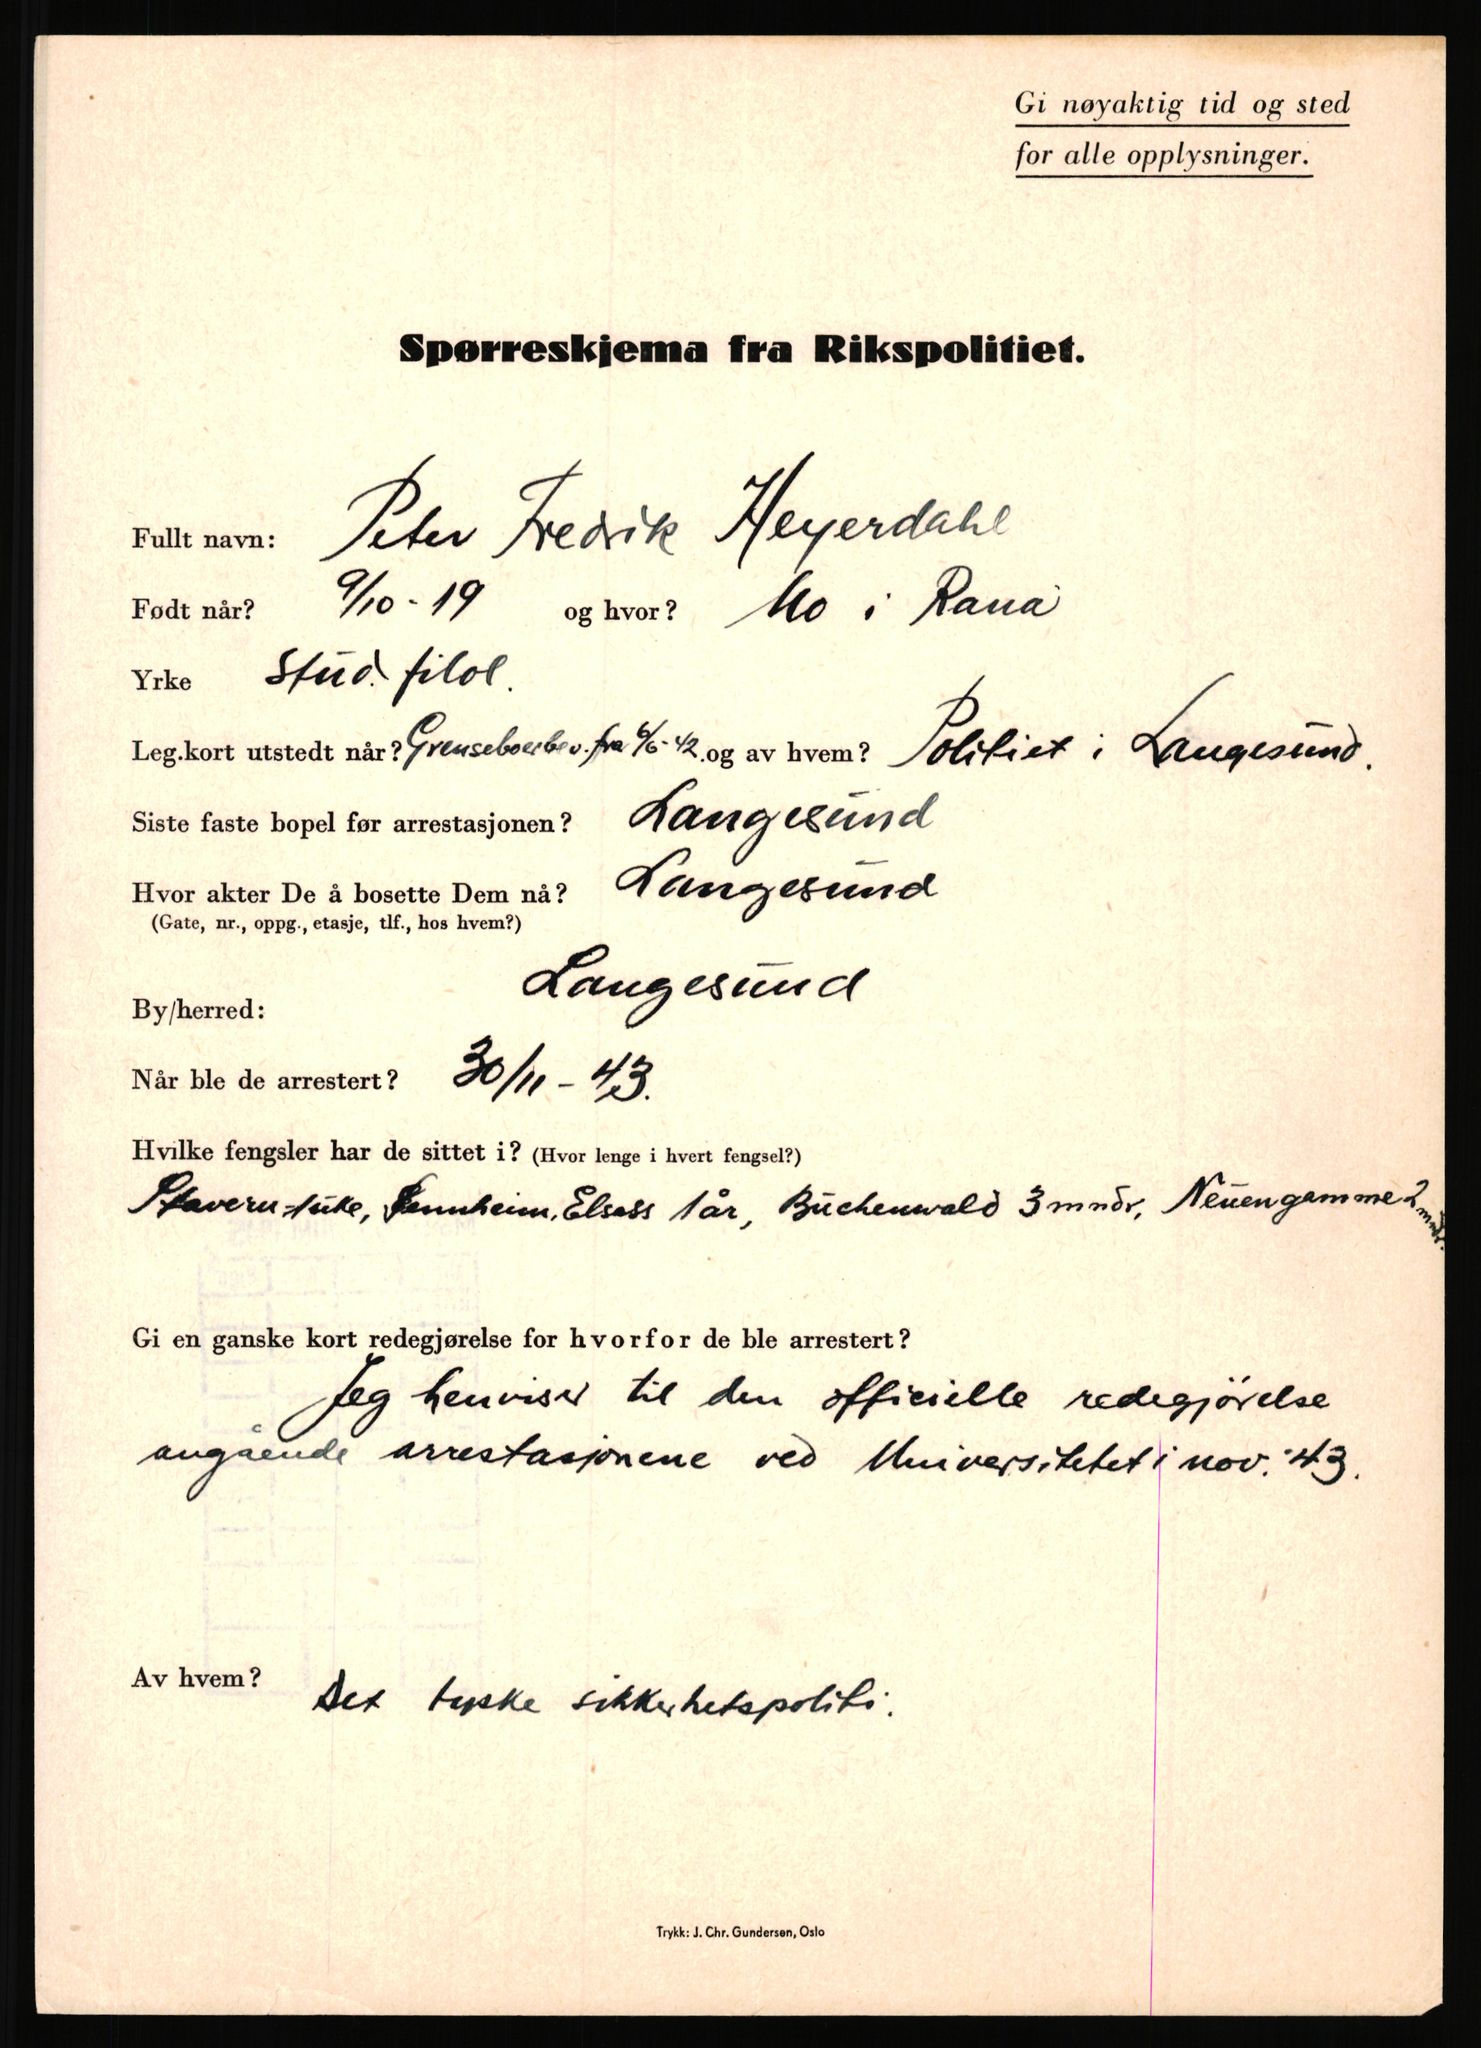 Gi nøyaktig tid og sted
for alle opplysninger.
Spørreskjema fra Rikspolitiet.
Fullt navn: Peter Fredrik Heyerdahl
Født når? 9/10-19 og hvor? Mo i Rana
Yrke Stud. filol.
Leg.kort utstedt når? Grenseboerbev. fra 6/6-42 og av hvem? Politiet i Langesund.
Siste faste bopel før arrestasjonen? Langesund
Hvor akter De å bosette Dem nå? Langesund
(Gate, nr., oppg., etasje, tlf., hos hvem?)
By/herred: Langesund
Når ble de arrestert? 30/11-43.
Hvilke fengsler har de sittet i? (Hvor lenge i hvert fengsel?)
Stavern 1uke, Sennheim, Elsass 1 år, Buchenwald 3 mndr, Neuengamme 2 mndr.
Gi en ganske kort redegjørelse for hvorfor de ble arrestert?
Jeg henviser til den officielle redegjørelse
angående arrestasjonene ved Universitetet i nov. '43.
Av hvem? Det tyske sikkerhetspoliti.
Trykk: J. Chr. Gundersen, Oslo